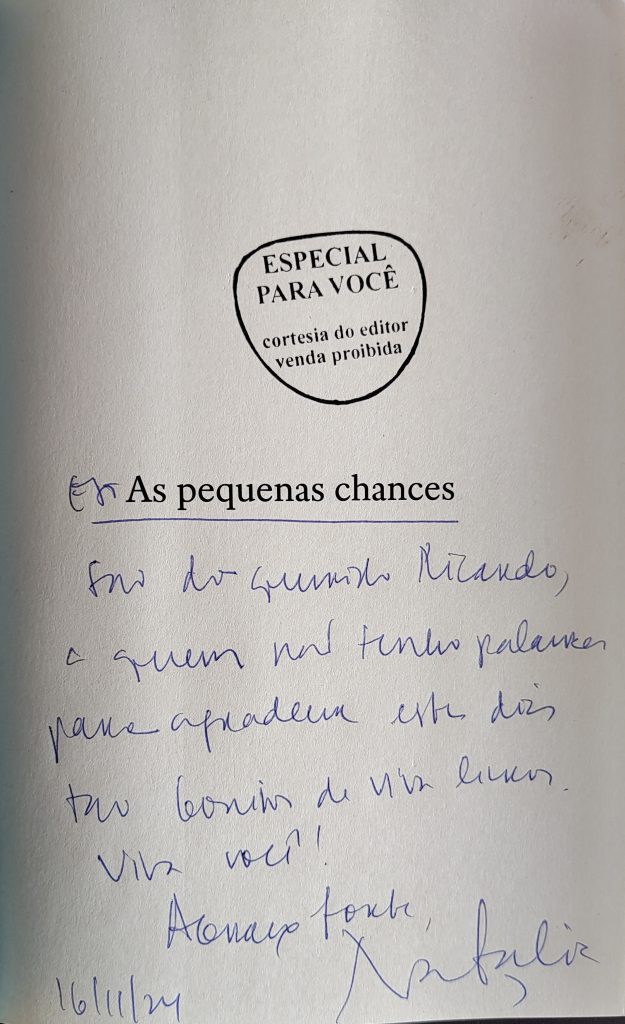 ESPECIAL
PARA VOCÊ
cortesia do editor
venda proibida
As pequenas chances
são do querido Ricardo,
a quem não tenho palavras
para agradecer estes dias
tão bonitos de viva livros.
Viva você!
Abraço forte,
Natalia
16/11/24